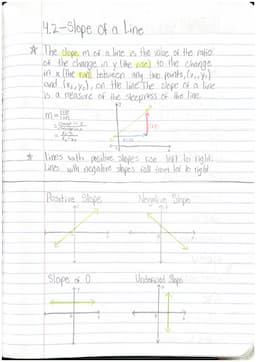 4.2-Slope of a Line
The slope, m, of a line is the value of the ratio
of the change in y (the rise) to the change
in x (the run) between any two points, (x₁, y₁)
and (x₂, y₂), on the line. The slope of a line
is a measure of the steepness of the line.
m = rise
run
Lines with positive slopes rise left to right.
Lines with negative slopes fall from left to right
Positive Slope Negative Slope
Slope of 0 Undefined Slope